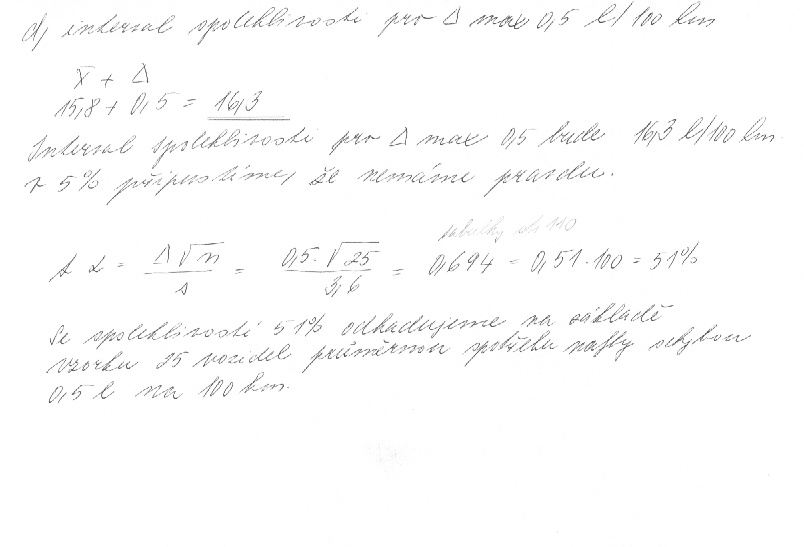 d, interval spolehlivosti pro Δ max 0,5 l/100 km
x̄ + Δ
15,8 + 0,5 = 16,3
Interval spolehlivosti pro Δ max 0,5 bude 16,3 l/100 km.
v 5% připustíme, že nemáme pravdu.
tabulky str 110
t α = Δ√n / s = 0,5 · √25 / 3,6 = 0,694 = 0,51 · 100 = 51%
Se spolehlivostí 51% odhadujeme na základě
vzorku 25 vozidel průměrnou spotřebu nafty s chybou
0,5 l na 100 km.